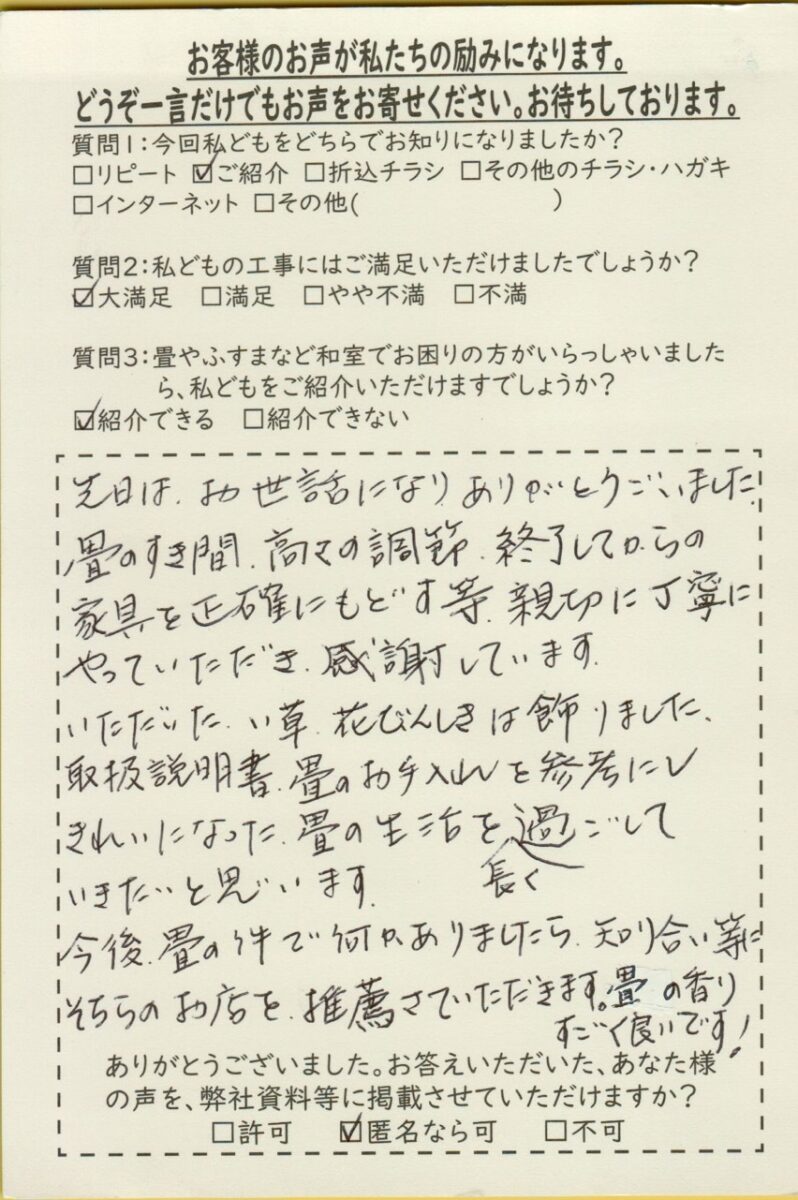 お客様のお声が私たちの励みになります。
どうぞ一言だけでもお声をお寄せください。お待ちしております。
質問1：今回私どもをどちらでお知りになりましたか？
□リピート ☑ご紹介 □折込チラシ □その他のチラシ・ハガキ
□インターネット □その他(　　　　　　　　)
質問2：私どもの工事にはご満足いただけましたでしょうか？
☑大満足 □満足 □やや不満 □不満
質問3：畳やふすまなど和室でお困りの方がいらっしゃいました
ら、私どもをご紹介いただけますでしょうか？
☑紹介できる □紹介できない
先日は、お世話になり、ありがとうございました。
畳のすき間、高さの調節、終了してからの
家具を正確にもどす等、親切に丁寧に
やっていただき、感謝しています。
いただいた、い草、花びんしきは飾りました、
取扱説明書、畳のお手入れを参考にし
きれいになった、畳の生活を過ごして
長く
いきたいと思います。
今後、畳の件で何かありましたら、知り合い等に
そちらのお店を、推薦させていただきます。畳の香り
すごく良いです！
ありがとうございました。お答えいただいた、あなた様
の声を、弊社資料等に掲載させていただけますか？
□許可 ☑匿名なら可 □不可